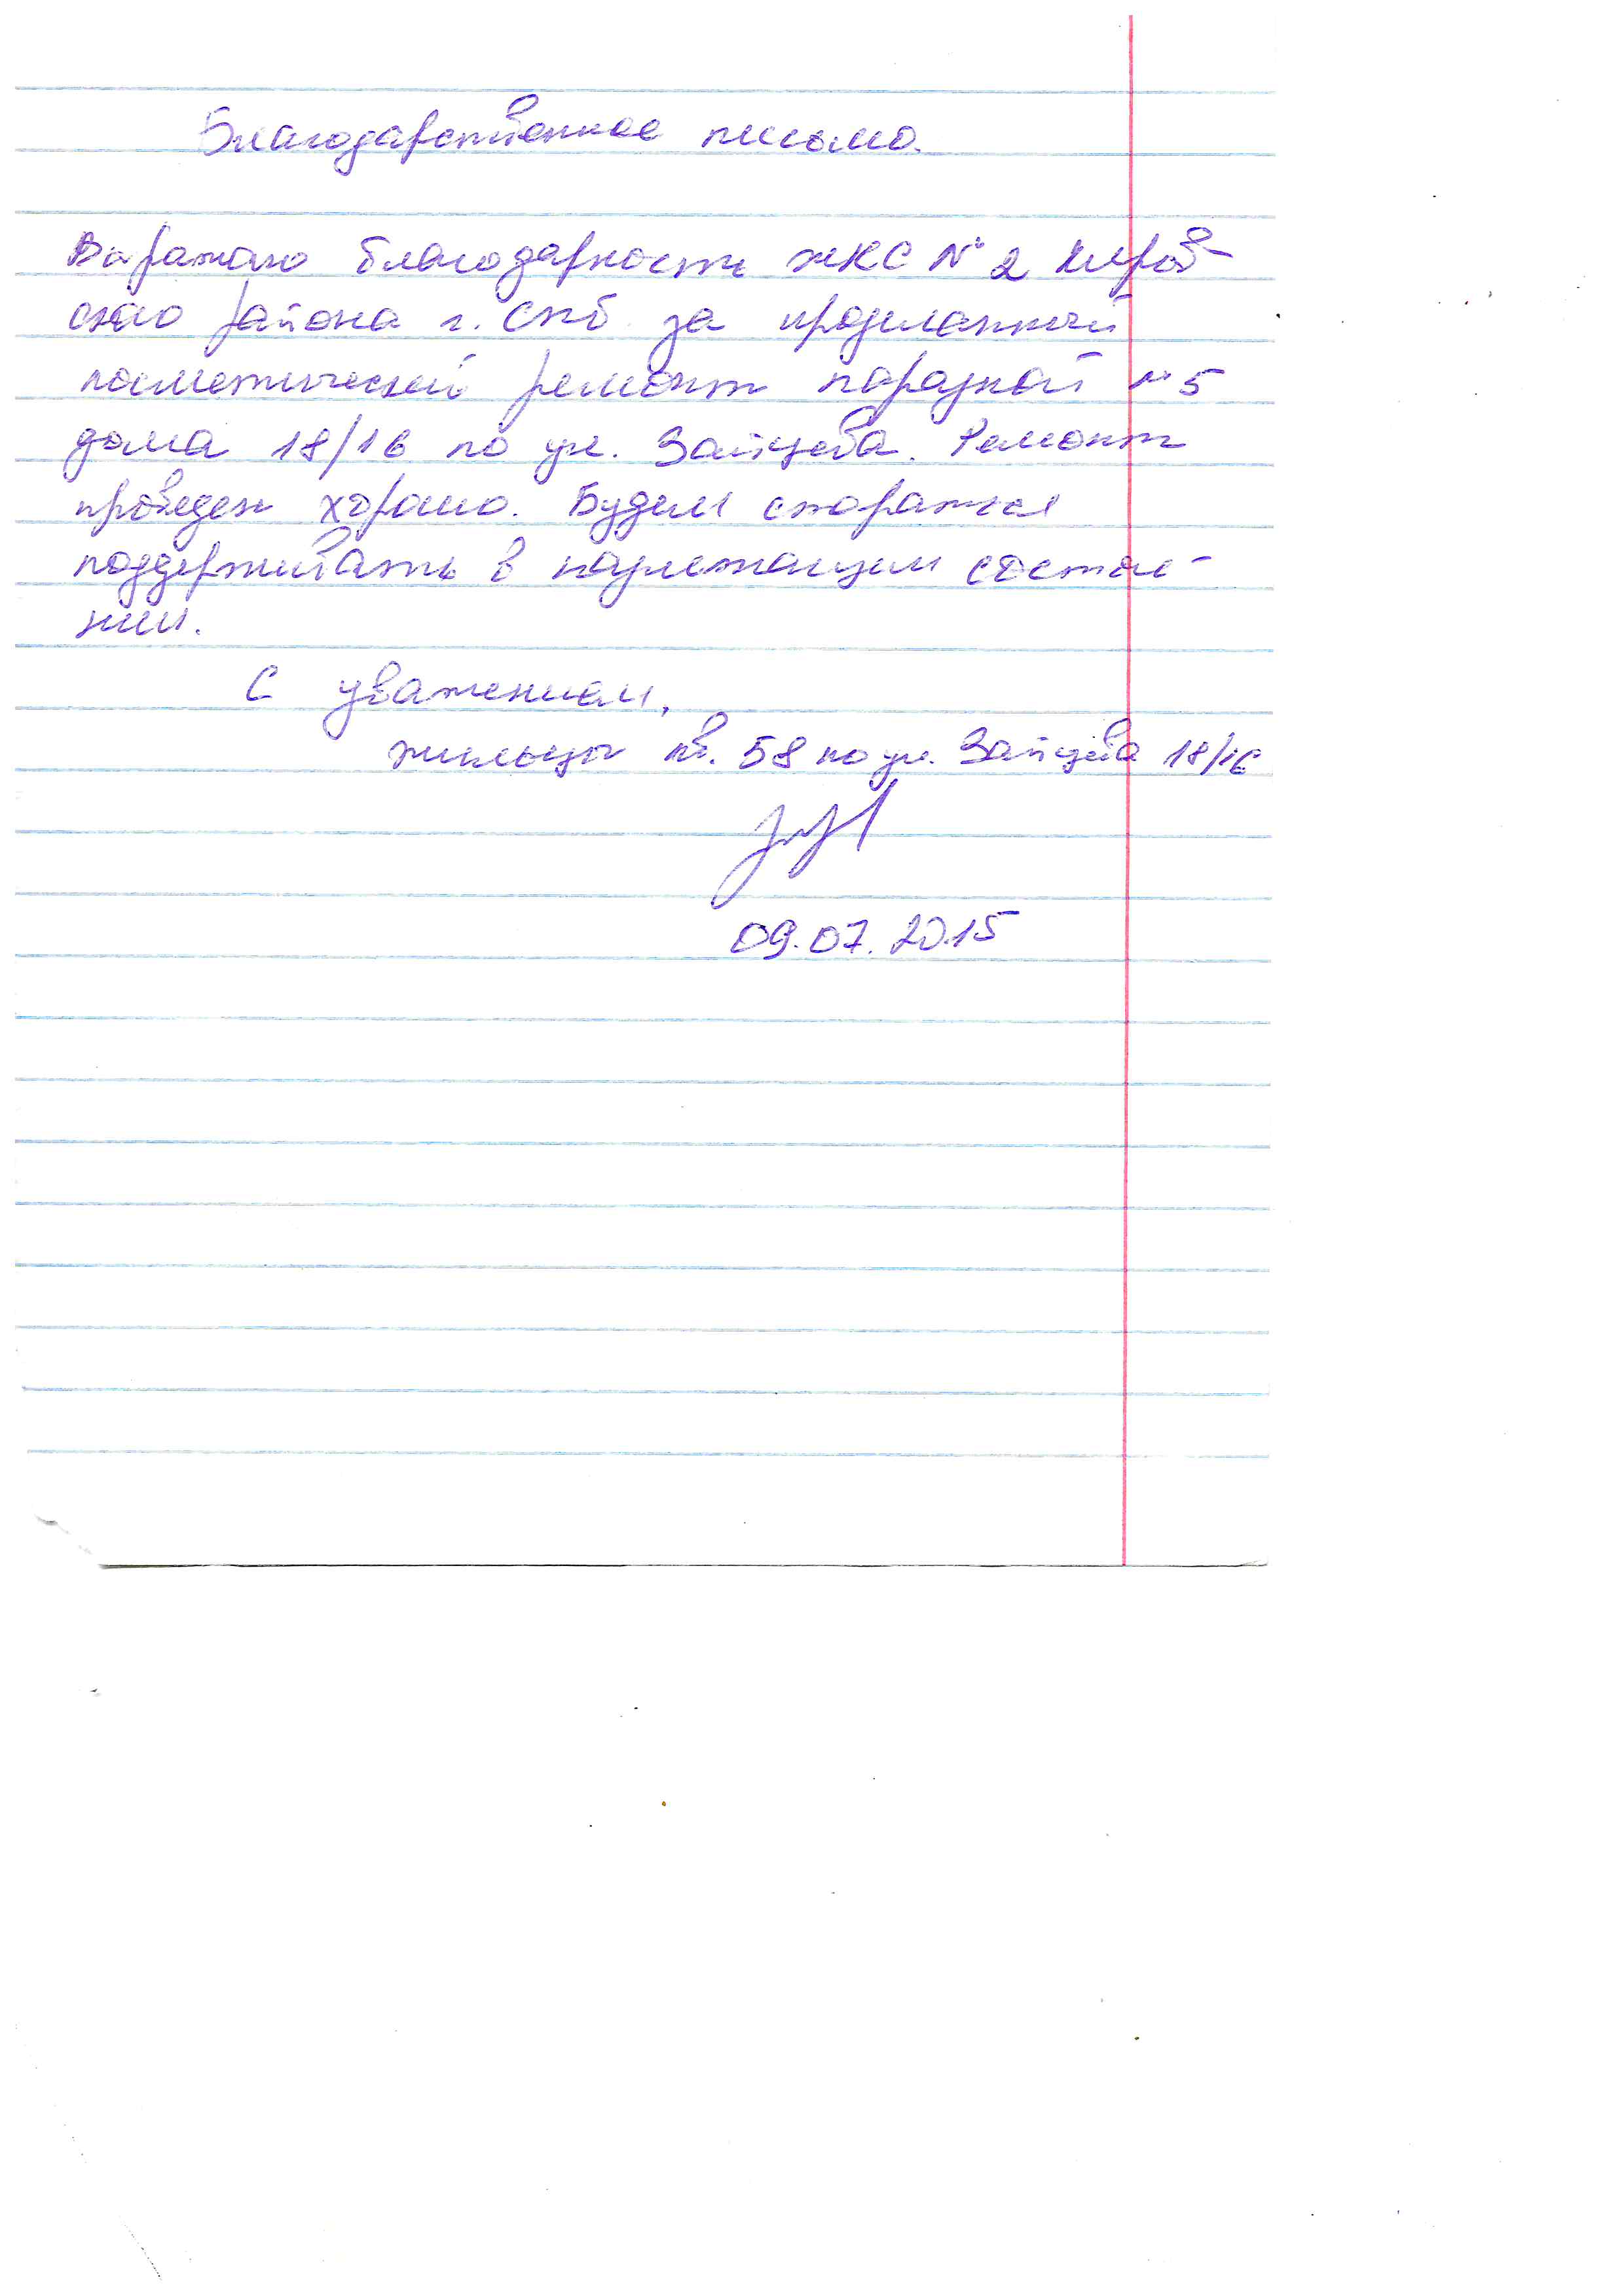 Благодарственное письмо.
Выражаю благодарность ЖКС № 2 Киров-
ского района г. СПб за проделанный
косметический ремонт парадной № 5
дома 18/16 по ул. Зайцева. Ремонт
проведен хорошо. Будем стараться
поддерживать в надлежащем состоя-
нии.
С уважением,
жильцы кв. 58 по ул. Зайцева 18/16
09.07.2015